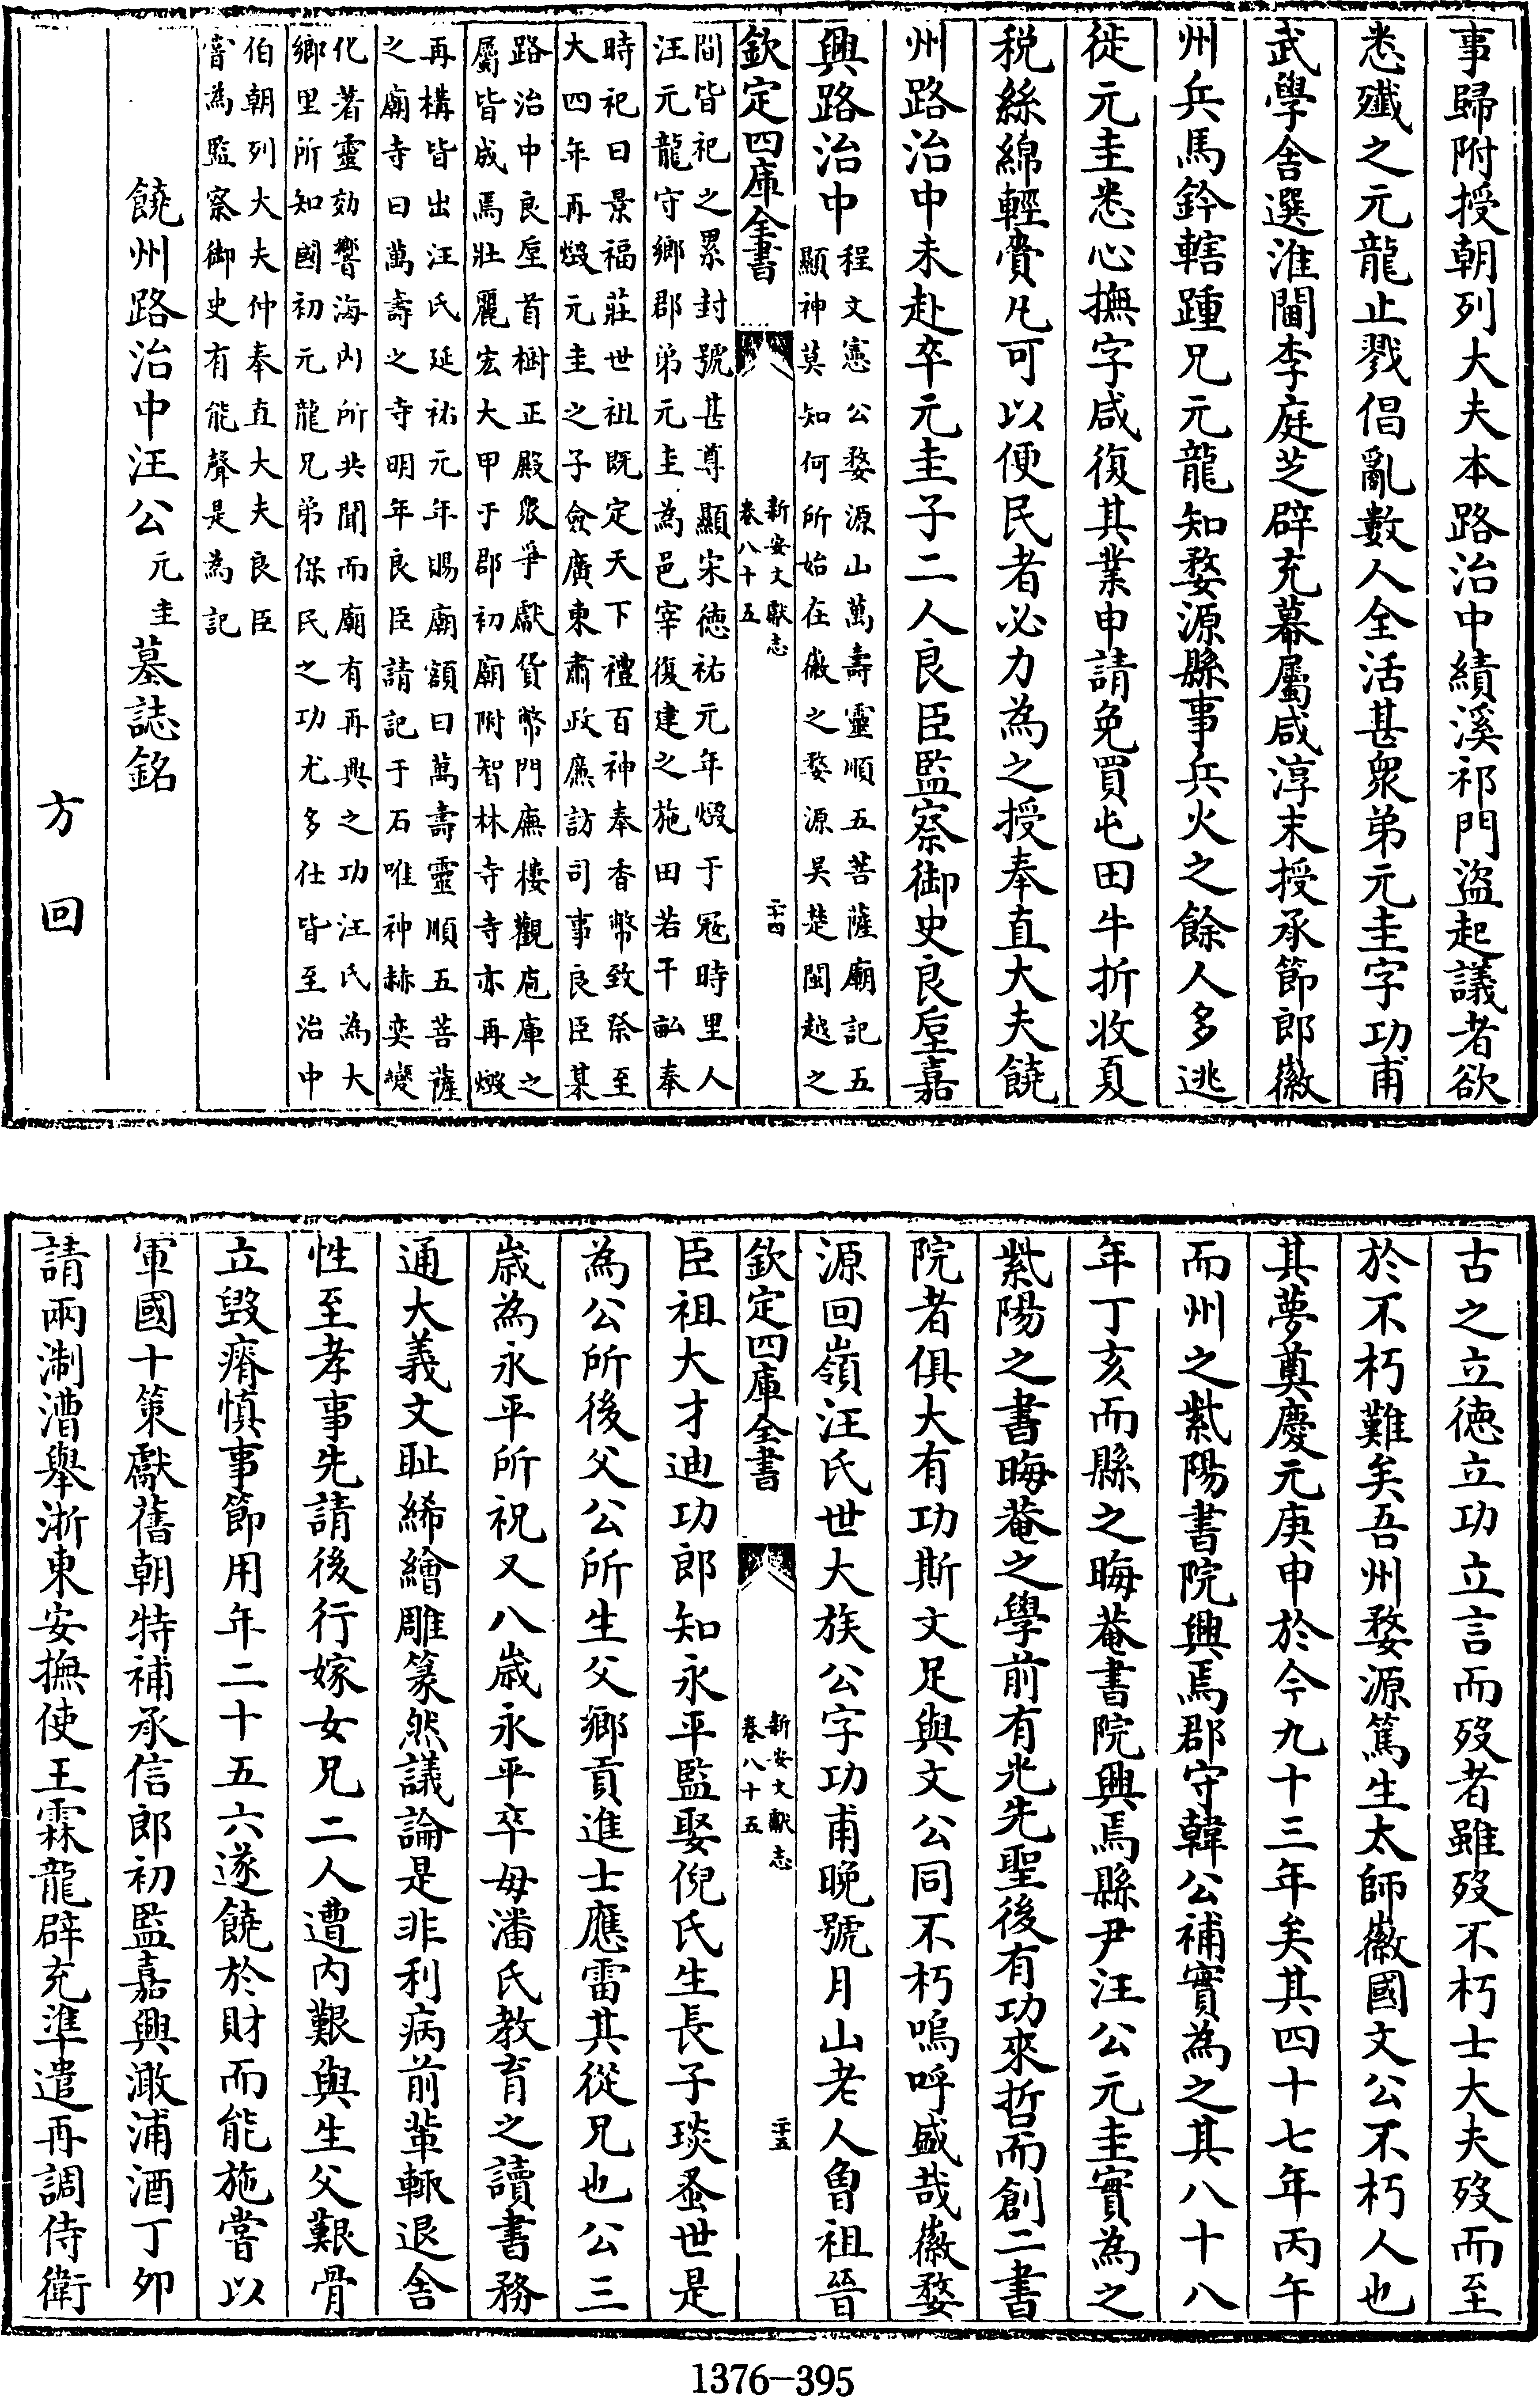 事歸附授朝列大夫本路治中績溪祁門盜起議者欲
悉殱之元龍止戮倡亂數人全活甚衆弟元圭字功甫
武學舍選淮閫李庭芝辟充幕屬咸淳末授承節郎徽
州兵馬鈐轄踵兄元龍知婺源縣事兵火之餘人多逃
徙元圭悉心撫字咸復其業申請免買屯田牛折收夏
税絲綿輕賫凡可以便民者必力為之授奉直大夫饒
州路治中未赴卒元圭子二人良臣監察御史良垕嘉
興路治中
程文憲公婺源山萬壽靈順五菩薩廟記五
顯神莫知何所始在徽之婺源吴楚閩越之
欽定四庫全書
新安文獻志
卷八十五
二十四
間皆祀之累封號甚尊顯宋徳祐元年燬于冦時里人
汪元龍守鄉郡弟元圭為邑宰復建之施田若干畝奉
時祀曰景福莊世祖既定天下禮百神奉香幣致祭至
大四年再燬元圭之子僉廣東肅政廉訪司事良臣某
路治中良垕首樹正殿衆爭獻貨幣門廡樓觀庖庫之
屬皆成焉壯麗宏大甲于郡初廟附智林寺寺亦再燬
再構皆出汪氏延祐元年賜廟額曰萬壽靈順五菩薩
之廟寺曰萬壽之寺明年良臣請記于石唯神赫奕變
化著靈効響海内所共聞而廟有再興之功汪氏為大
鄉里所知國初元龍兄弟保民之功尤多仕皆至治中
伯朝列大夫仲奉直大夫良臣
嘗為監察御史有能聲是為記
饒州路治中汪公元圭墓誌銘
方回
古之立徳立功立言而殁者雖殁不朽士大夫殁而至
於不朽難矣吾州婺源篤生太師徽國文公不朽人也
其夢奠慶元庚申於今九十三年矣其四十七年丙午
而州之紫陽書院興焉郡守韓公補實為之其八十八
年丁亥而縣之晦菴書院興焉縣尹汪公元圭實為之
紫陽之書晦菴之學前有光先聖後有功來哲而創二書
院者俱大有功斯文足與文公同不朽嗚呼盛哉徽婺
源回嶺汪氏世大族公字功甫晚號月山老人曾祖晉
欽定四庫全書
新安文獻志
卷八十五
二十五
臣祖大才迪功郎知永平監娶倪氏生長子琰蚤世是
為公所後父公所生父鄉貢進士應雷其從兄也公三
歲為永平所祝又八歲永平卒母潘氏教育之讀書務
通大義文耻絺繪雕篆然議論是非利病前輩輙退舍
性至孝事先請後行嫁女兄二人遭内艱與生父艱骨
立毀瘠慎事節用年二十五六遂饒於財而能施嘗以
軍國十策獻舊朝特補承信郎初監嘉興澉浦酒丁夘
請兩淛漕舉浙東安撫使王霖龍辟充準遣再調侍衛
1376-395